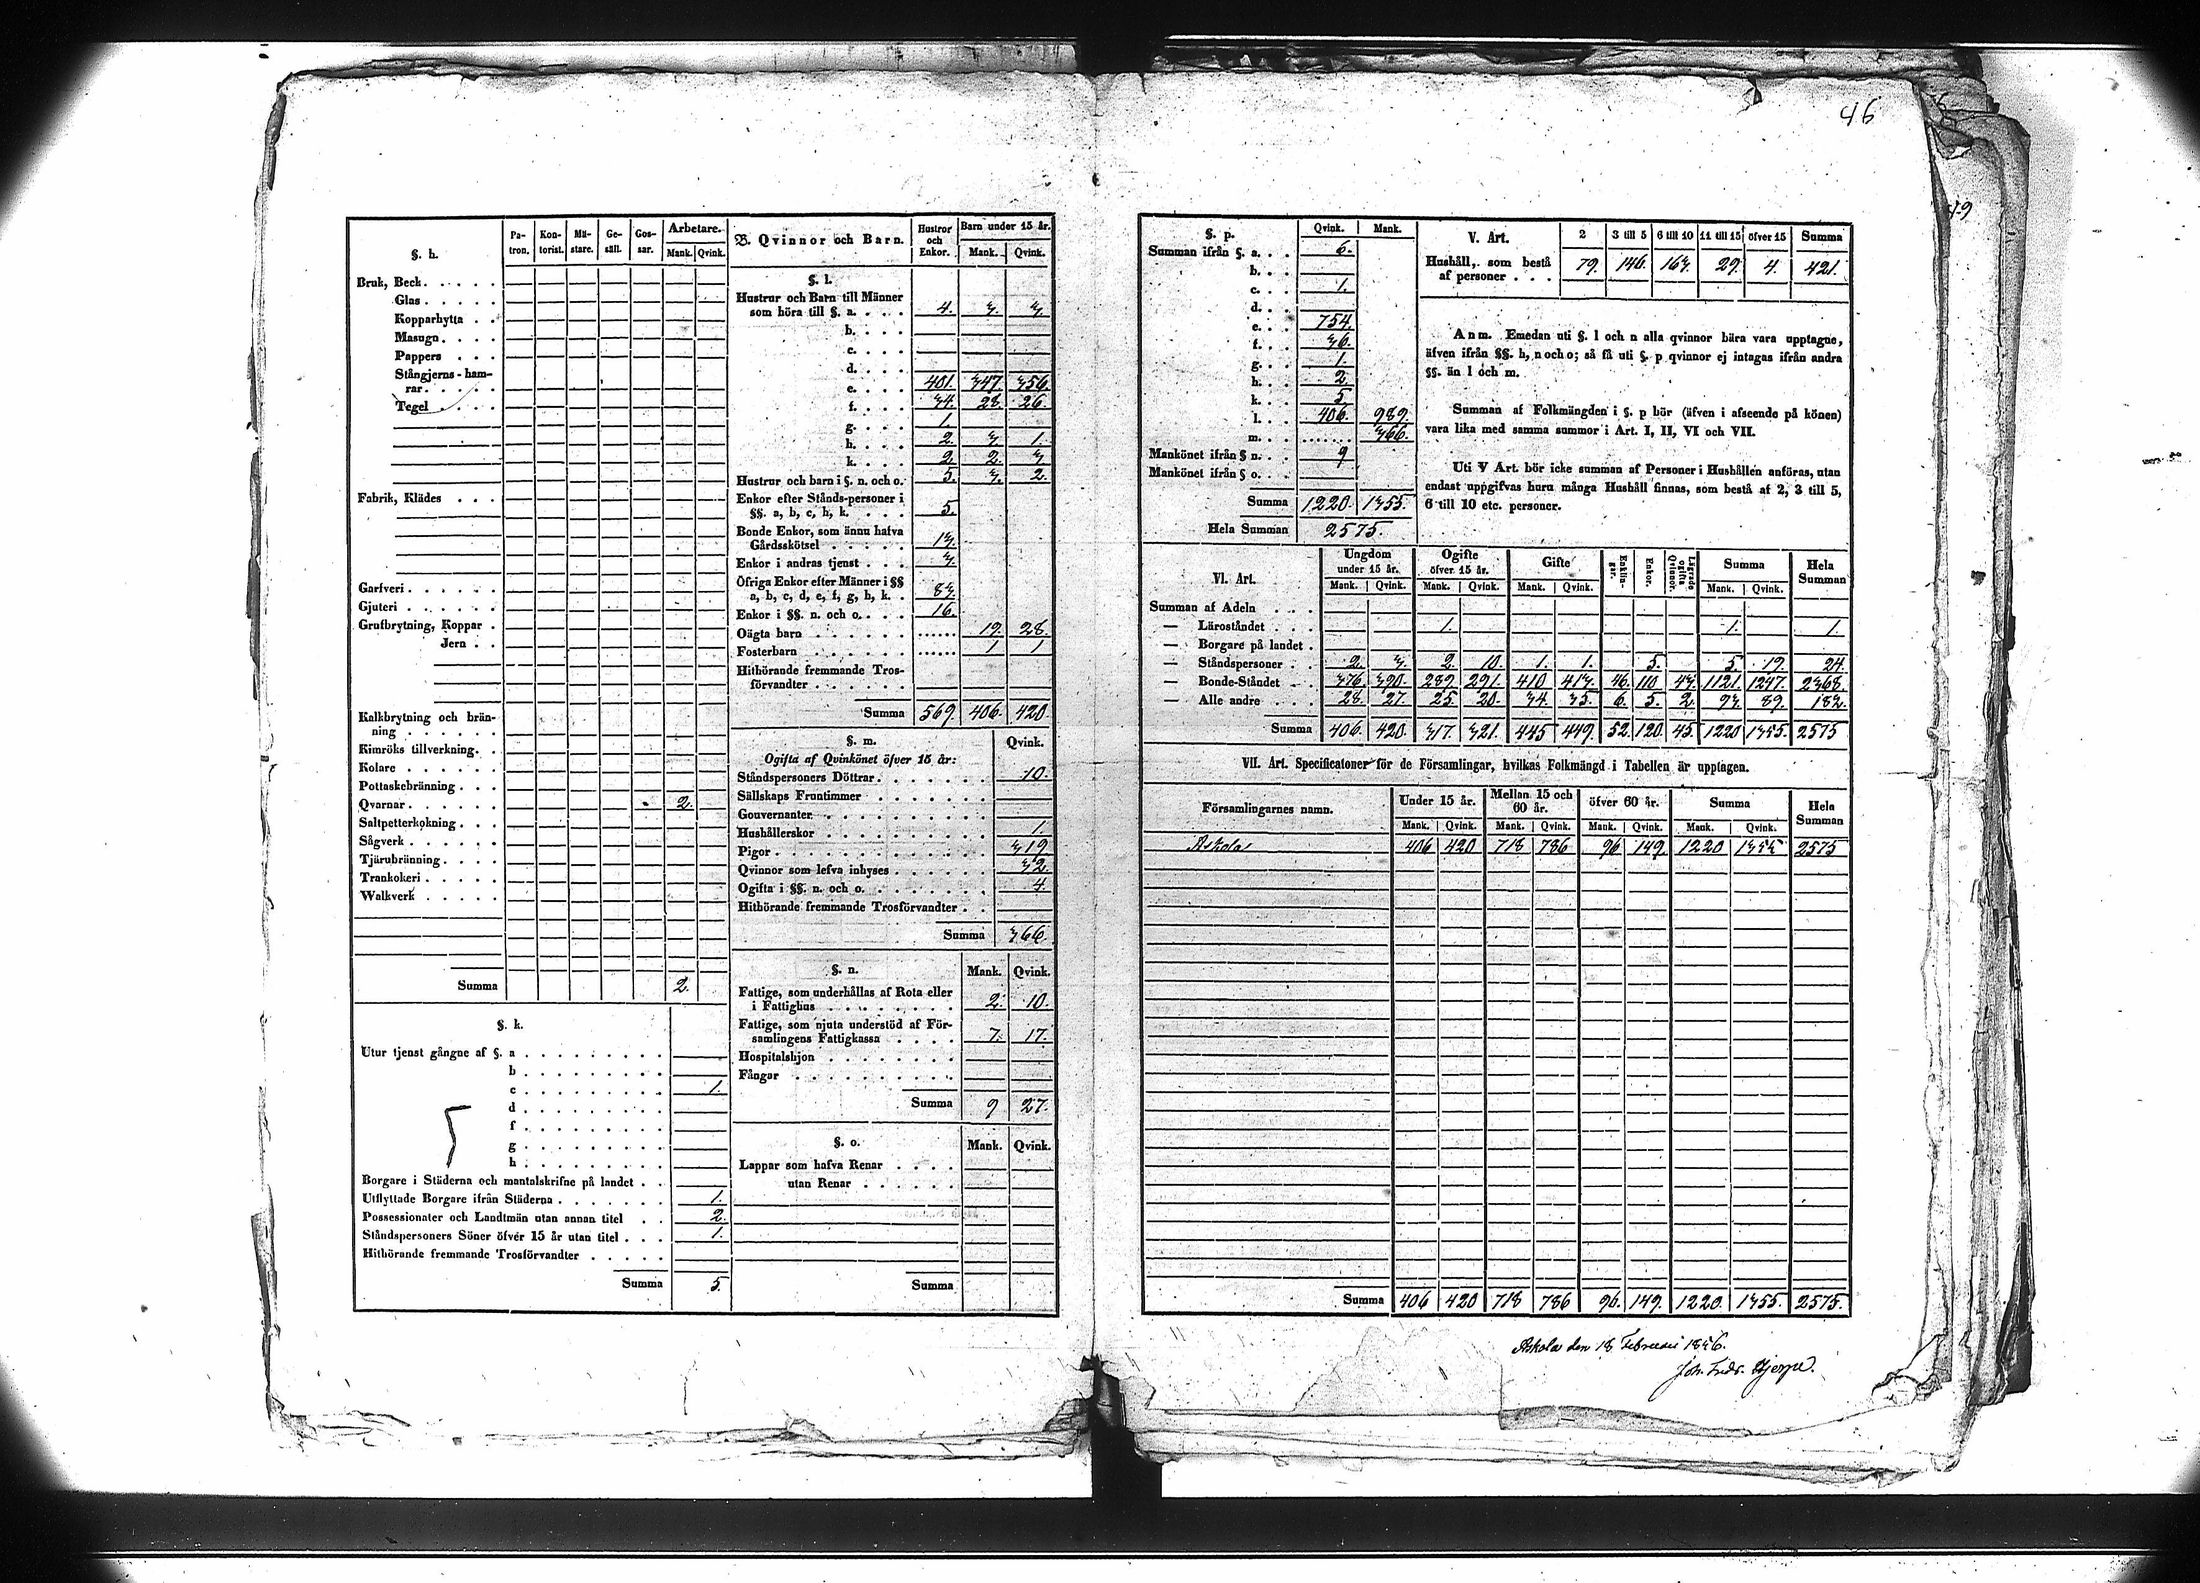 46
49
§. h. Patron. Kontorist. Mästare. Gesäll. Gossar. Arbetare. Mank. Qvink.
Bruk, Beck
Glas
Kopparhytta
Masugn
Pappers
Stångjerns-hamrar
Tegel
Fabrik, Klädes
Garfveri
Gjuteri
Grufbrytning, Koppar
Jern
Kalkbrytning och bränning
Kimröks tillverkning
Kolare
Pottaskebränning
Qvarnar 2.
Saltpetterkokning
Sågverk
Tjärubränning
Trankokeri
Walkverk
Summa 2.
§. k.
Utur tjenst gångne af §. a
b
c 1.
d
f
g
h
5
Borgare i Städerna och mantalskrifne på landet
Utflyttade Borgare ifrån Städerna 1.
Possessionater och Landtmän utan annan titel 2.
Ståndspersoners Söner öfver 15 år utan titel 1.
Hithörande fremmande Trosförvandter
Summa 5.
B. Qvinnor och Barn. Hustror och Enkor. Barn under 15 år. Mank. Qvink.
§. l.
Hustrur och Barn till Männer
som höra till §. a. 4. 3. 3.
b.
c.
d.
e. 401. 347. 356.
f. 34. 28. 26.
g. 1.
h. 2. 3. 1.
k. 2. 2. 3
Hustrur och barn i §. n. och o. 5. 3. 2.
Enkor efter Stånds-personer i
§§. a, b, c, h, k. 5.
Bonde Enkor, som ännu hafva
Gårdsskötsel 13.
Enkor i andras tjenst 3.
Öfriga Enkor efter Männer i §§
a, b, c, d, e, f, g, h, k. 83.
Enkor i §§. n. och o. 16.
Oägta barn 19. 28.
Fosterbarn 1 1
Hithörande fremmande Trosförvandter
Summa 569. 406. 420.
§. m. Qvink.
Ogifta af Qvinkönet öfver 15 år:
Ståndspersoners Döttrar 10.
Sällskaps Fruntimmer
Gouvernanter
Hushållerskor 1.
Pigor 319
Qvinnor som lefva inhyses 32.
Ogifta i §§. n. och o. 4.
Hithörande fremmande Trosförvandter
Summa 366.
§. n. Mank. Qvink.
Fattige, som underhållas af Rota eller
i Fattighus 2. 10.
Fattige, som njuta understöd af Församlingens Fattigkassa 7. 17.
Hospitalshjon
Fångar
Summa 9 27.
§. o. Mank. Qvink.
Lappar som hafva Renar
utan Renar
Summa
§. p. Qvink. Mank.
Summan ifrån §. a. 6.
b.
c. 1.
d.
e. 754.
f. 36.
g. 1.
h. 2.
k. 5.
l. 406. 989.
m. 366.
Mankönet ifrån § n. 9
Mankönet ifrån § o.
Summa 1220. 1355.
Hela Summan 2575.
V. Art. 2 3 till 5 6 till 10 11 till 15 öfver 15 Summa
Hushåll, som bestå
af personer 79. 146. 163. 29. 4. 421.
Anm. Emedan uti §. l och n alla qvinnor böra vara upptagne,
äfven ifrån §§. h, n och o; så få uti §. p qvinnor ej intagas ifrån andra
§§. än l och m.
Summan af Folkmängden i §. p bör (äfven i afseende på könen)
vara lika med samma summor i Art. I, II, VI och VII.
Uti V Art. bör icke summan af Personer i Hushållen anföras, utan
endast uppgifvas huru många Hushåll finnas, som bestå af 2, 3 till 5,
6 till 10 etc. personer.
VI. Art. Ungdom under 15 år. Ogifte öfver. 15 år. Gifte Enklingar. Enkor. Lägrade ogifta Qvinnor. Summa Hela Summan
Mank. Qvink. Mank. Qvink. Mank. Qvink. Mank. Qvink.
Summan af Adeln
— Läroståndet 1. 1. 1.
— Borgare på landet
— Ståndspersoner 2. 3. 2. 10. 1. 1. 5. 5. 19. 24.
— Bonde-Ståndet 376. 390. 289. 291. 410 413. 46. 110 43. 1121. 1247. 2368.
— Alle andre 28. 27. 25. 20. 34. 35. 6. 5. 2. 93. 89. 182.
Summa 406. 420. 317. 321. 445 449. 52. 120. 45. 1220 1355. 2575
VII. Art. Specificatoner för de Församlingar, hvilkas Folkmängd i Tabellen är upptagen.
Församlingarnes namn. Under 15 år. Mellan 15 och 60 år. öfver 60 år. Summa Hela Summan
Mank. Qvink. Mank. Qvink. Mank. Qvink. Mank. Qvink.
Askola 406 420 718 786 96 149. 1220 1355 2575
Summa 406 420 718 786 96. 149. 1220. 1355. 2575.
Askola den 18 Februari 1856.
Joh. Fredr.